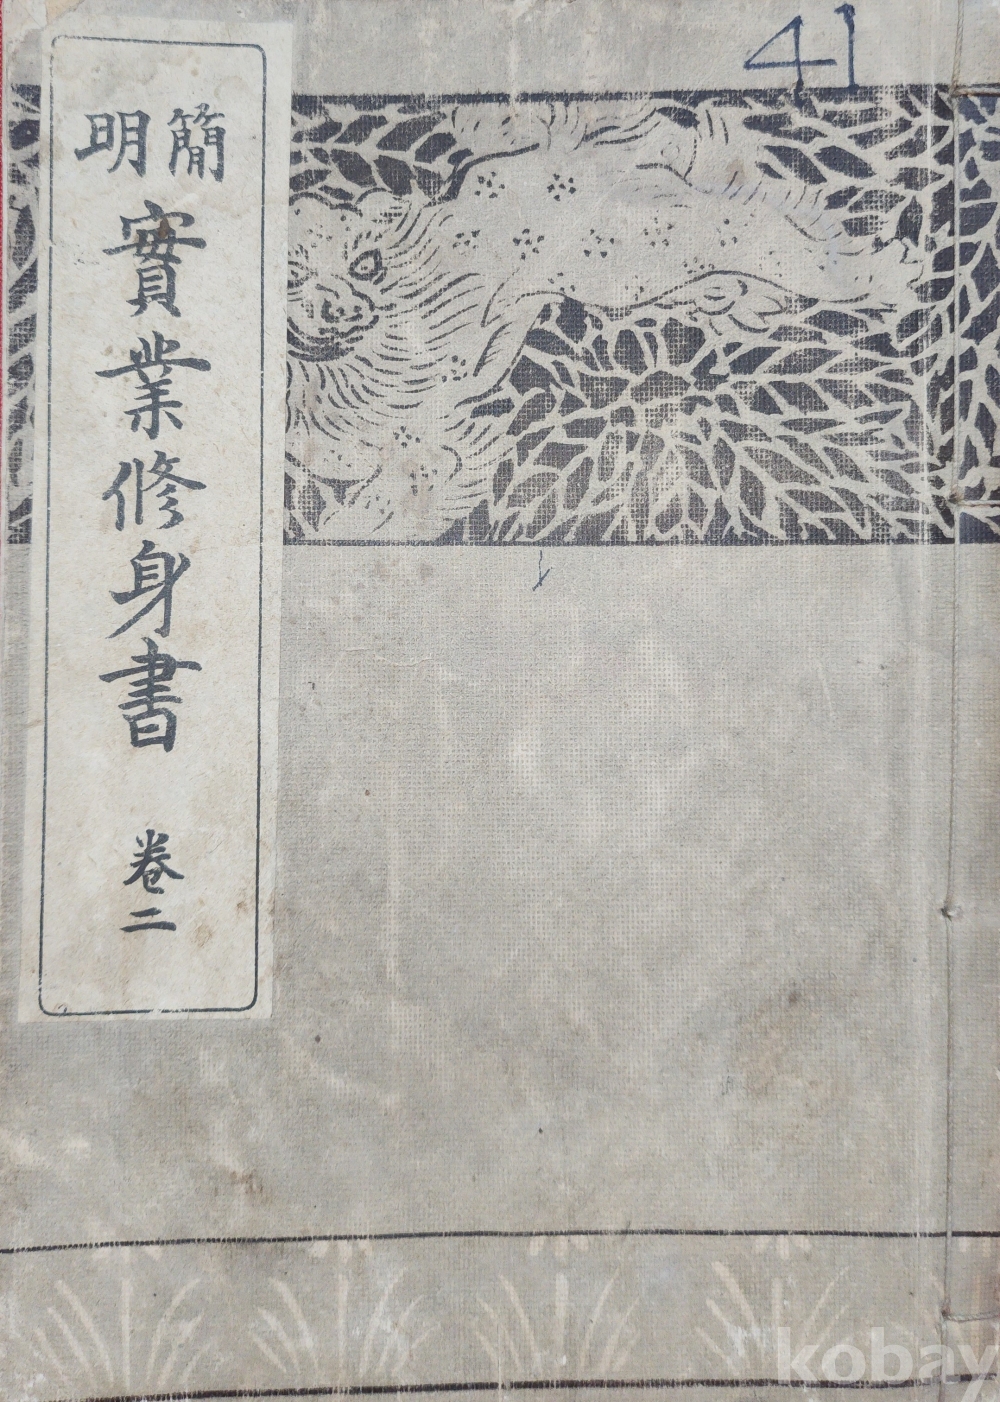 41
簡明
實業修身書
卷二
kobay